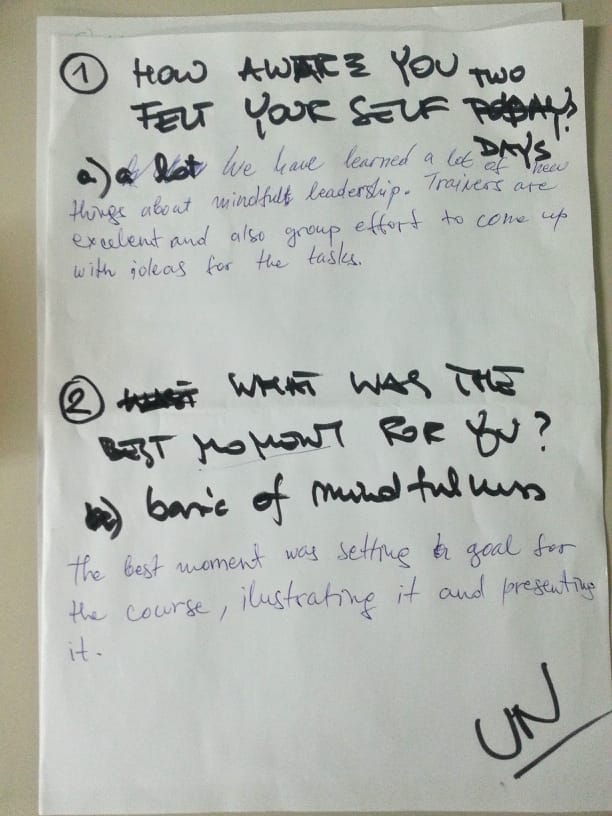 ① HOW AWARE YOU TWO
FELT YOUR SELF TODAY?
DAYS
a) a lot We have learned a lot of new
things about mindfull leadership. Trainers are
excelent and also group effort to come up
with ideas for the tasks.
② WHAT WAS THE
BEST MOMONT FOR YOU?
a) basic of mindfulness
The best moment was setting goal for
the course, ilustrating it and presenting
it.
UN